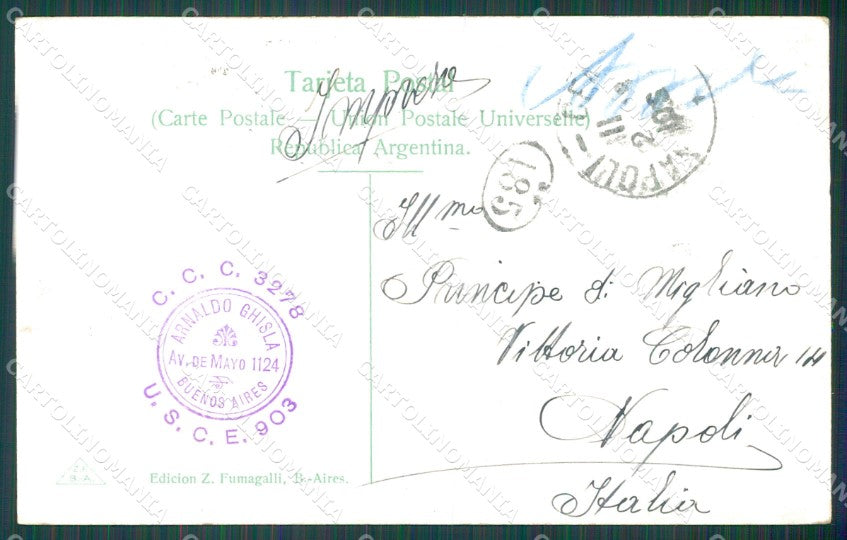 Tarjeta Postal
(Carte Postale — Union Postale Universelle)
Republica Argentina.
NAPOLI
185
Ill mo
Principe di Migliano
Vittoria Colonna 14
Napoli
Italia
C. C. C. 3278
ARNALDO GHISLA
AV. DE MAYO 1124
BUENOS AIRES
U. S. C. E. 903
Edicion Z. Fumagalli, B.-Aires.
CARTOLINOMANIA